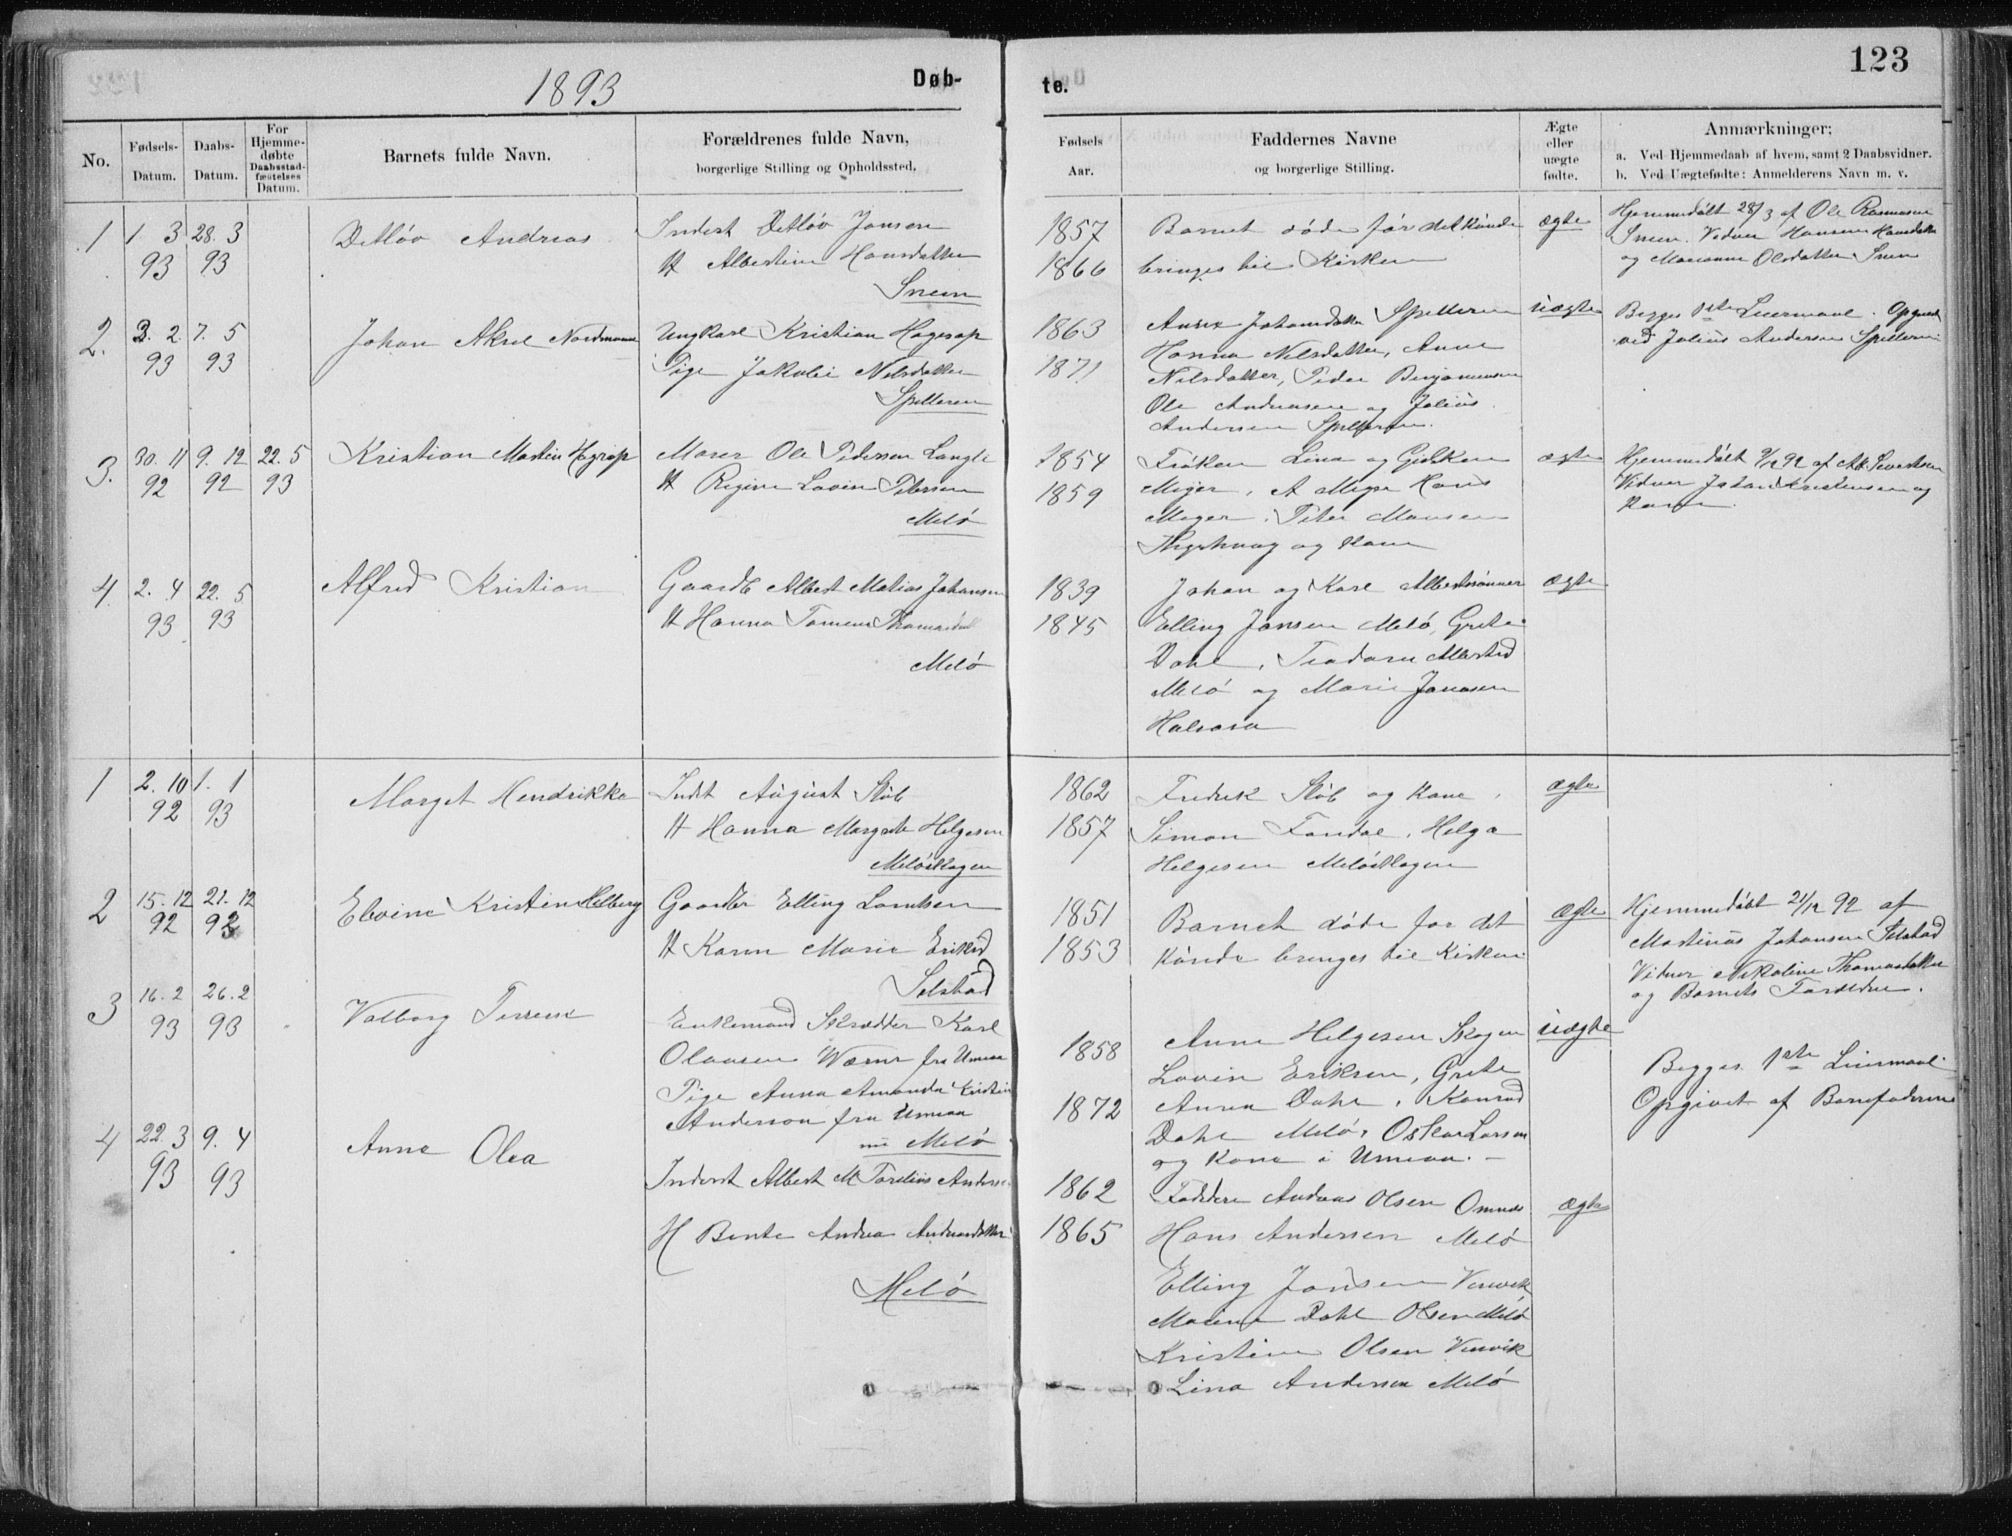 123
1893
Døb-
te.
No.
Fødsels-
Datum.
Daabs-
Datum.
For
Hjemme-
døbte
Daabsstad-
fæstelses
Datum.
Barnets fulde Navn.
Forældrenes fulde Navn,
borgerlige Stilling og Opholdssted.
Fødsels
Aar.
Faddernes Navne
og borgerlige Stilling.
Ægte
eller
uægte
fødte.
Anmærkninger;
a. Ved Hjemmedaab af hvem, samt 2 Daabsvidner.
b. Ved Uægtefødte: Anmelderens Navn m. v.
1 1. 3 28. 3
93 93
Detløv Andreas
Inderst Detløv Jonsen
H Albertine Hansdatter
Sneen
1857
1866
Barnet døde før det kunde
bringes til Kirken
ægte
Hjemmedøbt 28/3 af Ole Rasmussen
Sneen. Vidner Hansdatter
og Marianne Olsdatter Sneen
2. 3. 2. 7. 5
93 93
Johan Aksel Nordmann
Ungkarl Kristian Hagerop
Pige Jakobie Nilsdatter
Spilderen
1863
1871
Anne Johansdatter Spilderen
Hanna Nilsdatter, Anne
Nilsdatter, Peder Benjaminsen
Ole Andreasen og Julius
Andersen Spilderen.
uægte
Begges 1ste Leiermaal. Opgivet
ved Julius Andersen Spilderen
3. 30. 11 9. 12 22. 5
92 92 93
Kristian Martin Hagrop
Maser Ole Pedersen Langli
H Regine Lovise Petersen
Melø
1854
1859
Frøken Lina og Gidsken
Meyer, A Meyer Hans
Meyer, Peter Monsen
og Kone
ægte
Hjemmedøbt 9/12 92 af
Vidner Johan Kristensen og
Kone.
4. 2. 4 22. 5
93 93
Alfred Kristian
Gaardb Albert Matias Johansen
H Hanna Tomine Thomasdat
Melø
1839
1845
Johan og Karl Albertsønner
Elling Jansen Melø, Grete
Dahl, Teodora Albertsd
Melø og Marie Jonasen
Halsosa
ægte
1 2. 10 1. 1
92 93
Marget Hendrikke
Indst August Støb
H Hanna Margrete Helgesen
Meløskogen
1862
1857
Fredrik Støb og Kone,
Simon Fondal, Helga
Helgesen Meløskogen
ægte
2 15. 12 21. 12
92 92
Elvine Kristine Helberg
Gaardbr Elling Lorntsen
H Karen Marie Eriksd
Selstad
1851
1853
Barnet døde før det
kunde bringes til Kirken
ægte
Hjemmedøbt 21/12 92 af
Martinus Johansen Selstad
Vidner Nikoline Thomasdatter
og Barnets Forældre.
3 16. 2 26. 2
93 93
Valborg Terese
Enkemand Skrædder Karl
Olausen Werner fra Umeaa
Pige Anna Amanda Kristin
Anderson fra Umeaa
nu Melø
1858
1872
Anne Helgesen Skogen
Lovise Eriksen, Grete
Anna Dahl, Konrad
Dahl Melø, Oskar Larsen
og Kone i Umeaa.
uægte
Begges 1ste Leiermaal
Opgivet af Barnefaderen
4 22. 3 9. 4
93 93
Anne Olea
Inderst Albert M Torelius Andersen
H Bente Andrea Andreasdatter
Melø
1862
1865
Faddere Andreas Olsen Omnes
Hans Andersen Melø
Elling Jansen Venvik
Marine Dahl Olsen Melø
Kristine Olsen Venvik
Lina Andersen Melø
ægte